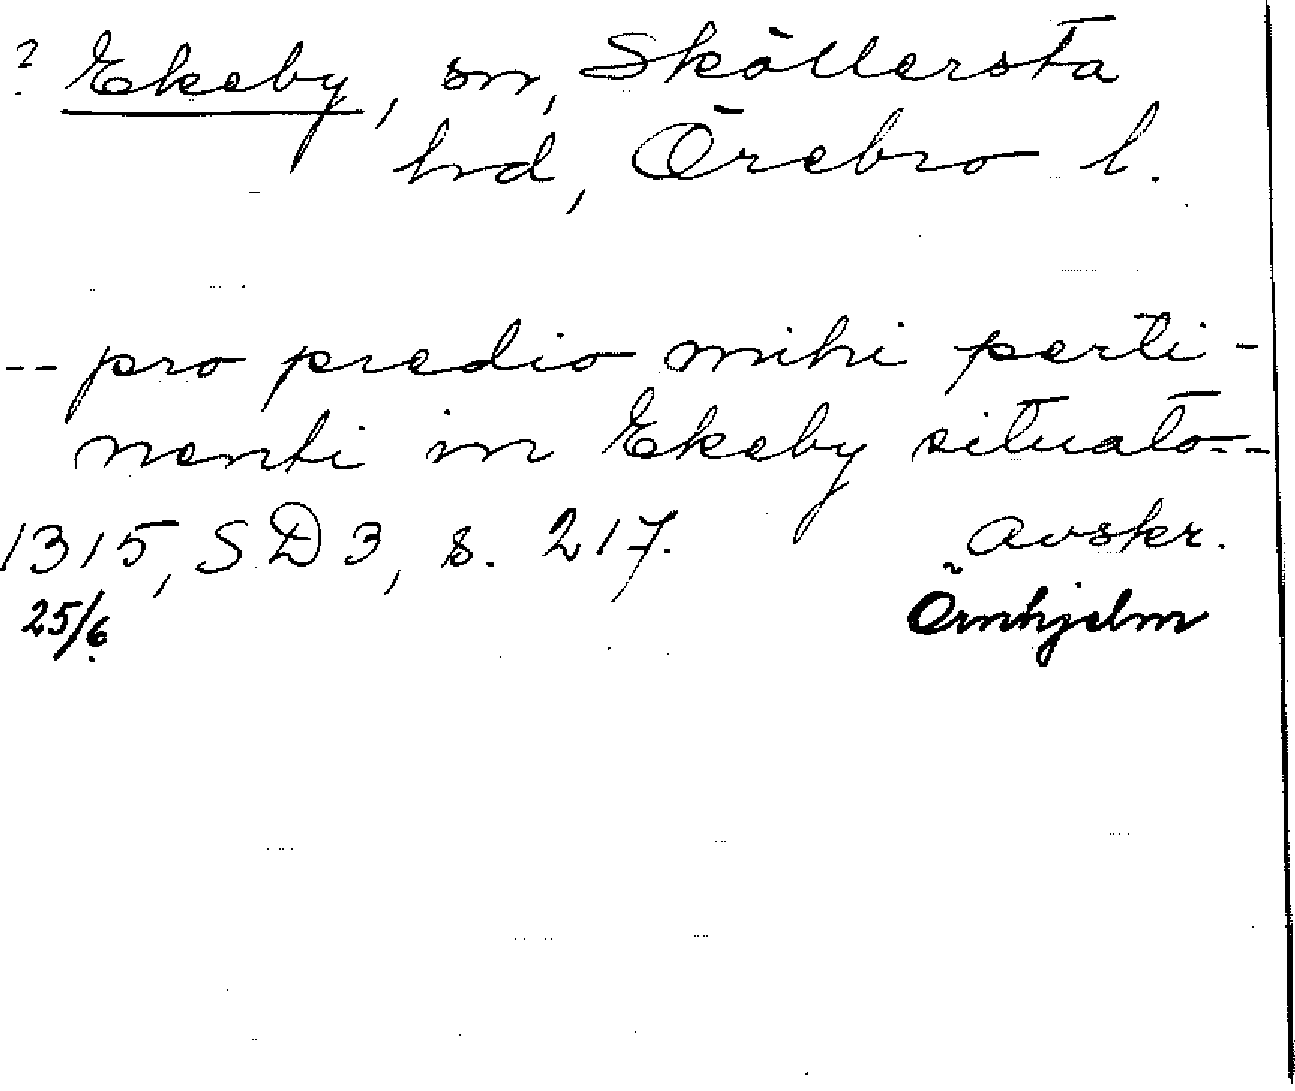 ? Ekeby, sn, Sköllersta
hd, Örebro l.
-- pro predio mihi perti-
nenti in Ekeby situato--
1315, SD 3, s. 217. avskr.
25/6 Örnhjelm